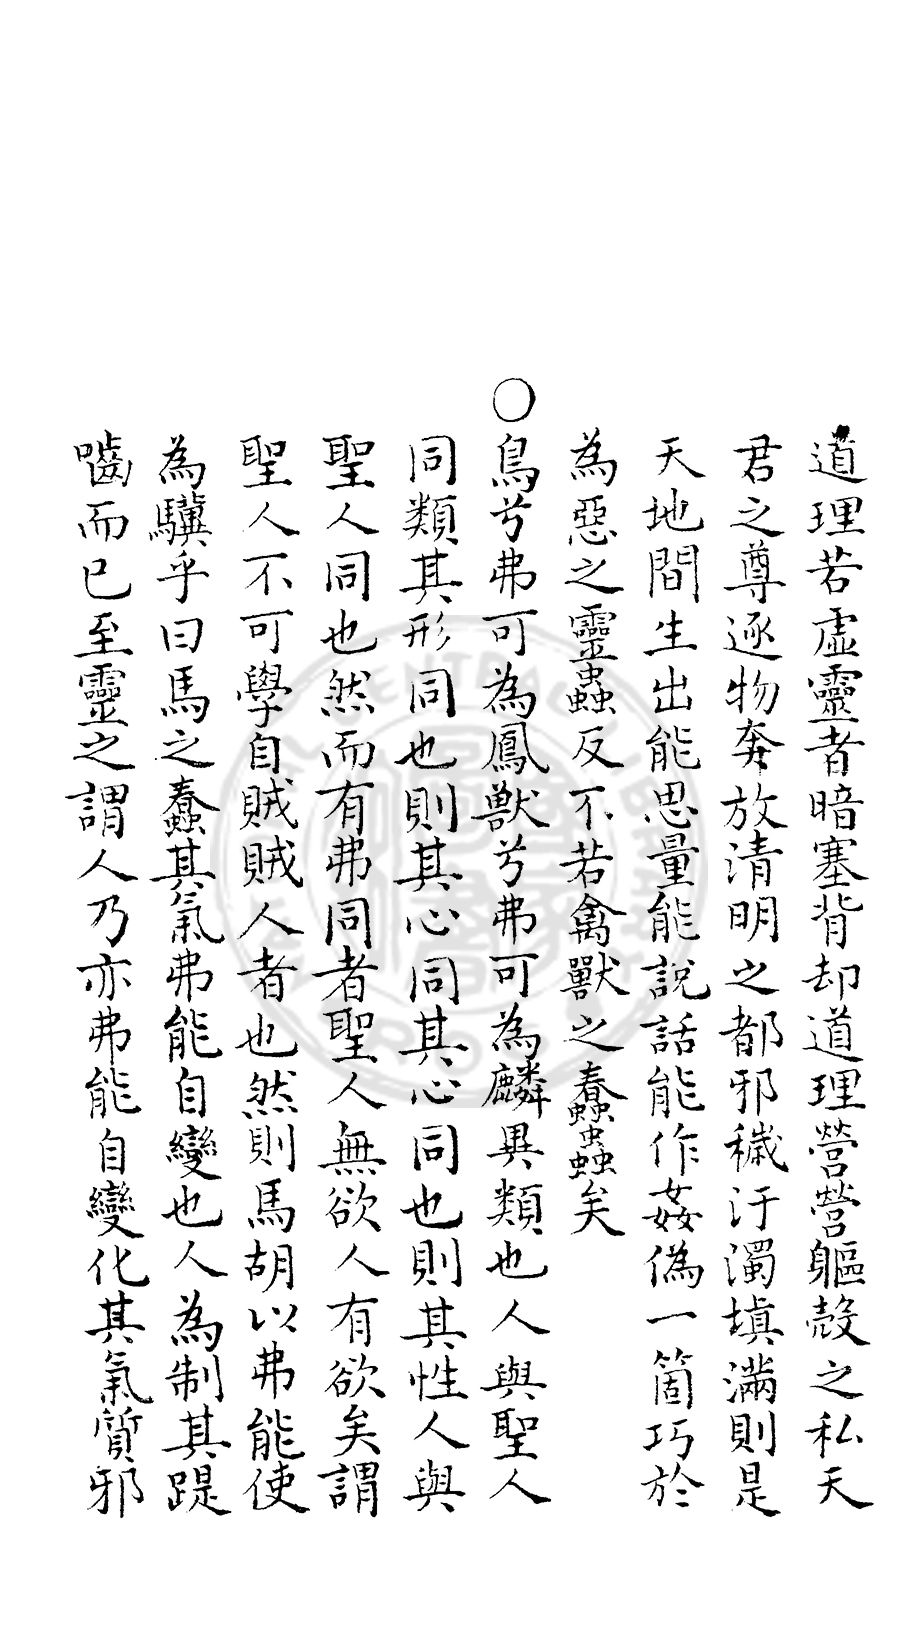 道理若虛靈者暗塞背却道理營營軀殼之私天
君之尊逐物奔放清明之都邪穢汙濁塡滿則是
天地間生出能思量能說話能作姦偽一箇巧於
為惡之靈蟲反不若禽獸之蠢蟲矣
○鳥兮弗可為鳳獸兮弗可為麟異類也人與聖人
同類其形同也則其心同其心同也則其性人與
聖人同也然而有弗同者聖人無欲人有欲矣謂
聖人不可學自賊賊人者也然則馬胡以弗能使
為驥乎曰馬之蠢其氣弗能自變也人為制其踶
嚙而已至靈之謂人乃亦弗能自變化其氣質邪